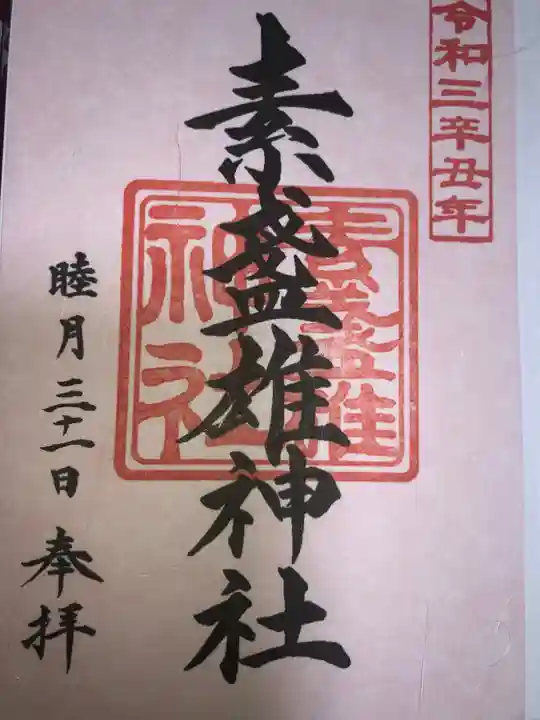 令和三辛丑年
素盞雄神社
素盞雄
神社
睦月三十一日
奉拝